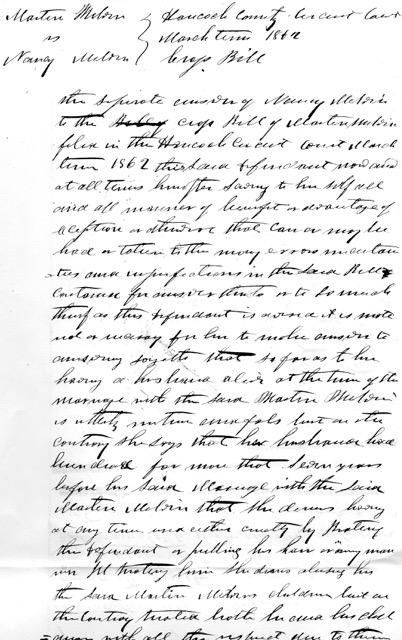 Martin Melvin } Hancock County Circuit Court
vs } March term 1862
Nancy Melvin } Cross Bill
the seperate answer of Nancy Melvin
to the Cross Bill of Martin Melvin
filed in the Hancock Circuit Court March
term 1862 this said defendant now and
at all times hereafter saving to her self all
and all manner of benefit or advantage of
exception or otherwise that can or may be
had or taken to the many errors uncertain
ties and imperfections in the said Bill
contained for answer thereto or to so much
thereof as this defendant is advised it is
not necessary for her to make answer to
answering sayeth that so far as to her
having a husband alive at the time of the
marriage with the said Martin Melvin
is utterly untrue and fals but on the
contrary she says that her husband had
been dead for more that seven years
before his said Marriage with the said
Martin Melvin that she denies having
at any time used either cruelty by
the defendant or pulling his hair or any man
ner Ill treating him she denies abusing his
the said Martin Melvins children but on
the contrary treated both he and his chil
dren with all the respect due to them